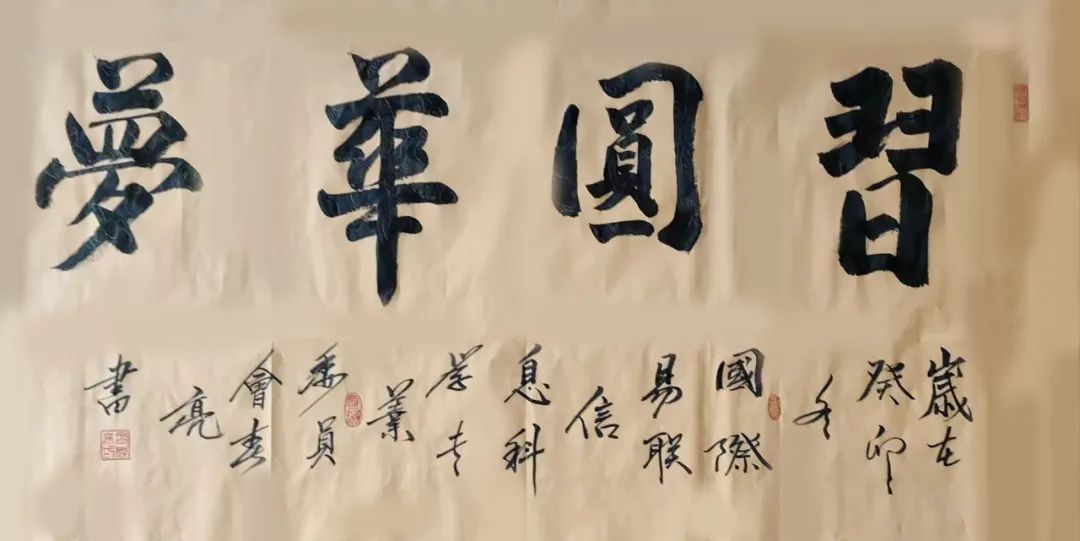 習圓華夢
歲在
癸卯
冬
國際
易联
信
息科
学专
業
委員
會
亮
書